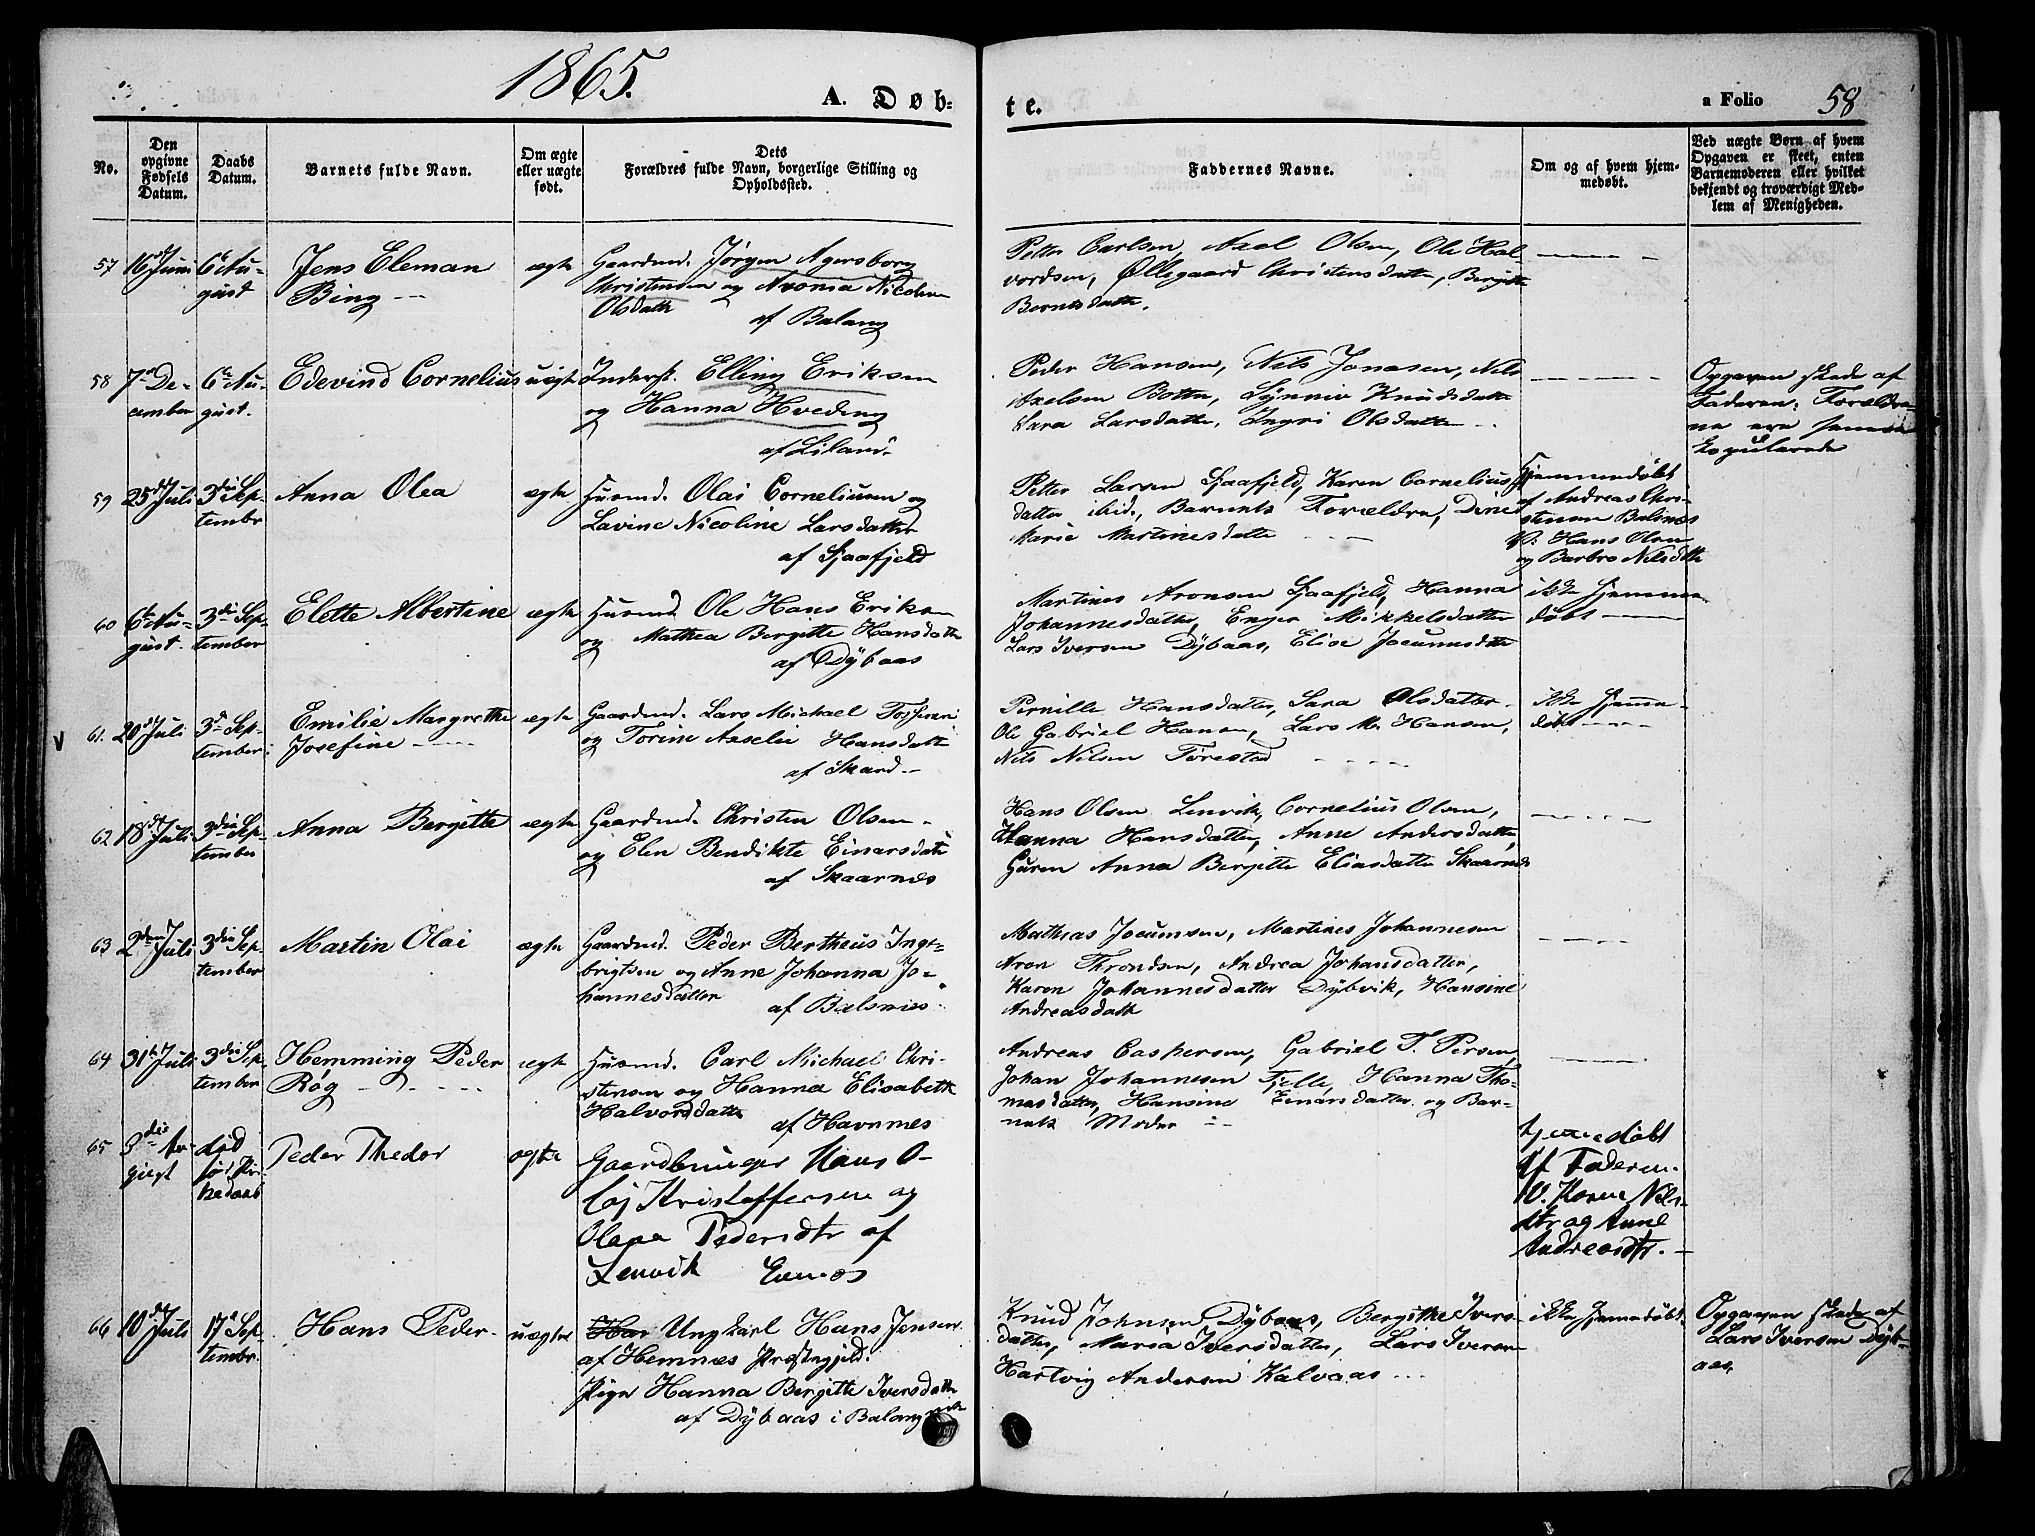 1865.
A. Døb-
te.
a Folio 58
No.
Den
opgivne
Fødsels
Datum.
Daabs
Datum.
Barnets fulde Navn.
Om ægte
eller uægte
født.
Dets
Forældres fulde Navn, borgerlige Stilling og
Opholdssted.
Faddernes Navne.
Om og af hvem hjem-
medøbt.
Ved uægte Børn af hvem
Opgaven er skeet, enten
Barnemoderen eller hvilket
bekjendt og troværdigt Med-
lem af Menigheden.
57
16d Juni
6te Au-
gust
Jens Eleman
Bing
ægte
Gaardmd. Jørgen Agersborg
Christensen og Nicoline
Olsdatter
af Balang
Petter Carlsen, Axel Olsen, Ole Hal-
vordsen, Øllegaard Christensdatter, Bergitte
Berntsdatter.
58
7de De-
cember
6te Au-
gust.
Edevind Cornelius
uægte
Inderst. Elling Eriksen
og Hanna Hveding
af Liland.
Peder Hansen, Nils Jonasen, Nils
Axelsen Botten, Synniv Knudsdatter
Sara Larsdatter, Ingri Olsdatter
Opgaven skede af
Faderen; Forældre-
ne ere sammen
kopulerede
59
25d Juli
3die Sep-
tembr
Anna Olea
ægte
Husmd. Olai Corneliusen og
Lavine Nicoline Larsdatter
af Sjaafjeld
Petter Larsen Sjaafjeld, Karen Cornelius-
datter ibid., Barnets Forældre, Dine
Marie Martinesdatter
Hjemmedøbt
af Andreas Chri-
stensen Balsnæs
V: Hans Olsen
og Barbro Nilsdttr
60
6te Au-
gust.
3die Sep-
tember
Elette Albertine
ægte
Husmd. Ole Hans Eriksen
og Mathea Bergitte Hansdatter
af Dÿbaas
Martines Aronsen Sjaafjeld, Hanna
Johannesdatter, Enger Mikkelsdatter
Lars Iversen Dÿbaas, Elise Jocumsdttr
ikke hjemme-
døbt
61.
20d Juli
3d Sep-
tember.
Emilie Margrethe
Josefine
ægte
Gaardmd. Lars Michael Tofferen
og Torine Axselie Hansdatter
af Skard
Pernille Hansdatter, Sara Olsdatter
Ole Gabriel Hansen, Lars M. Hansen,
Nils Nilsen Forestad
ikke hjemme-
døbt
62
18d Juli
3die Sep-
tember
Anna Bergitte
ægte
Gaardmd. Christen Olsen
og Elen Bendikte Einarsdatter
af Skaarnes
Hans Olsen Lenvik, Cornelius Olsen,
Hanna Hansdatter, Anne Andersdatter,
Guren Anna Bergitte Eliasdatter Skaarnes
63
2den Juli
3die Sep-
tember
Martin Olai
ægte
Gaardmd. Peder Bertheus Inge-
brigtsen og Anne Johanna Jo-
hannesdatter
af Balsnæs
Mathias Jocumsen, Martines Johannesen
Aron Throndsen, Andrea Johansdatter,
Karen Johannesdatter Dÿbvik, Hansine
Andreasdattr
64
31te Juli
3die Sep-
tember
Hemming Peder
Røg
ægte
Husmd. Carl Michael Chri-
stensen og Hanna Elisabeth
Halvordsdatter
af Havnnes
Andreas Caspersen, Gabriel T. Persen,
Johan Johannesen Fjelle, Hanna Tho-
masdatter, Hansine Einarsdatter og Bar-
nets Moder
65
3die Au-
gust
død
før Kir-
kedaab
Peder Thedor
ægte
Gaardbruger Hans O-
laj Kristoffersen og
Olava Pedersdtr af
Lenvik Evenes
hjemedøbt
af Faderen.
V. Karen Nils-
dtr og Anne
Andreasdtr.
66
10d Juli
17d Sep-
tembr.
Hans Peder
uægte
Ungkarl Hans Jensen
af Hemnæs Præstegjeld.
Pige Hanna Bergitte Iversdatter
af Dÿbaas i Balangen
Knud Johnsen Dÿbaas, Bergithe Ivers-
datter, Maria Iversdatter, Lars Iversen
Hartvig Andersen Kalvaas
ikke hjemmedøbt.
Opgaven skede af
Lars Iversen Dÿb-
aas.